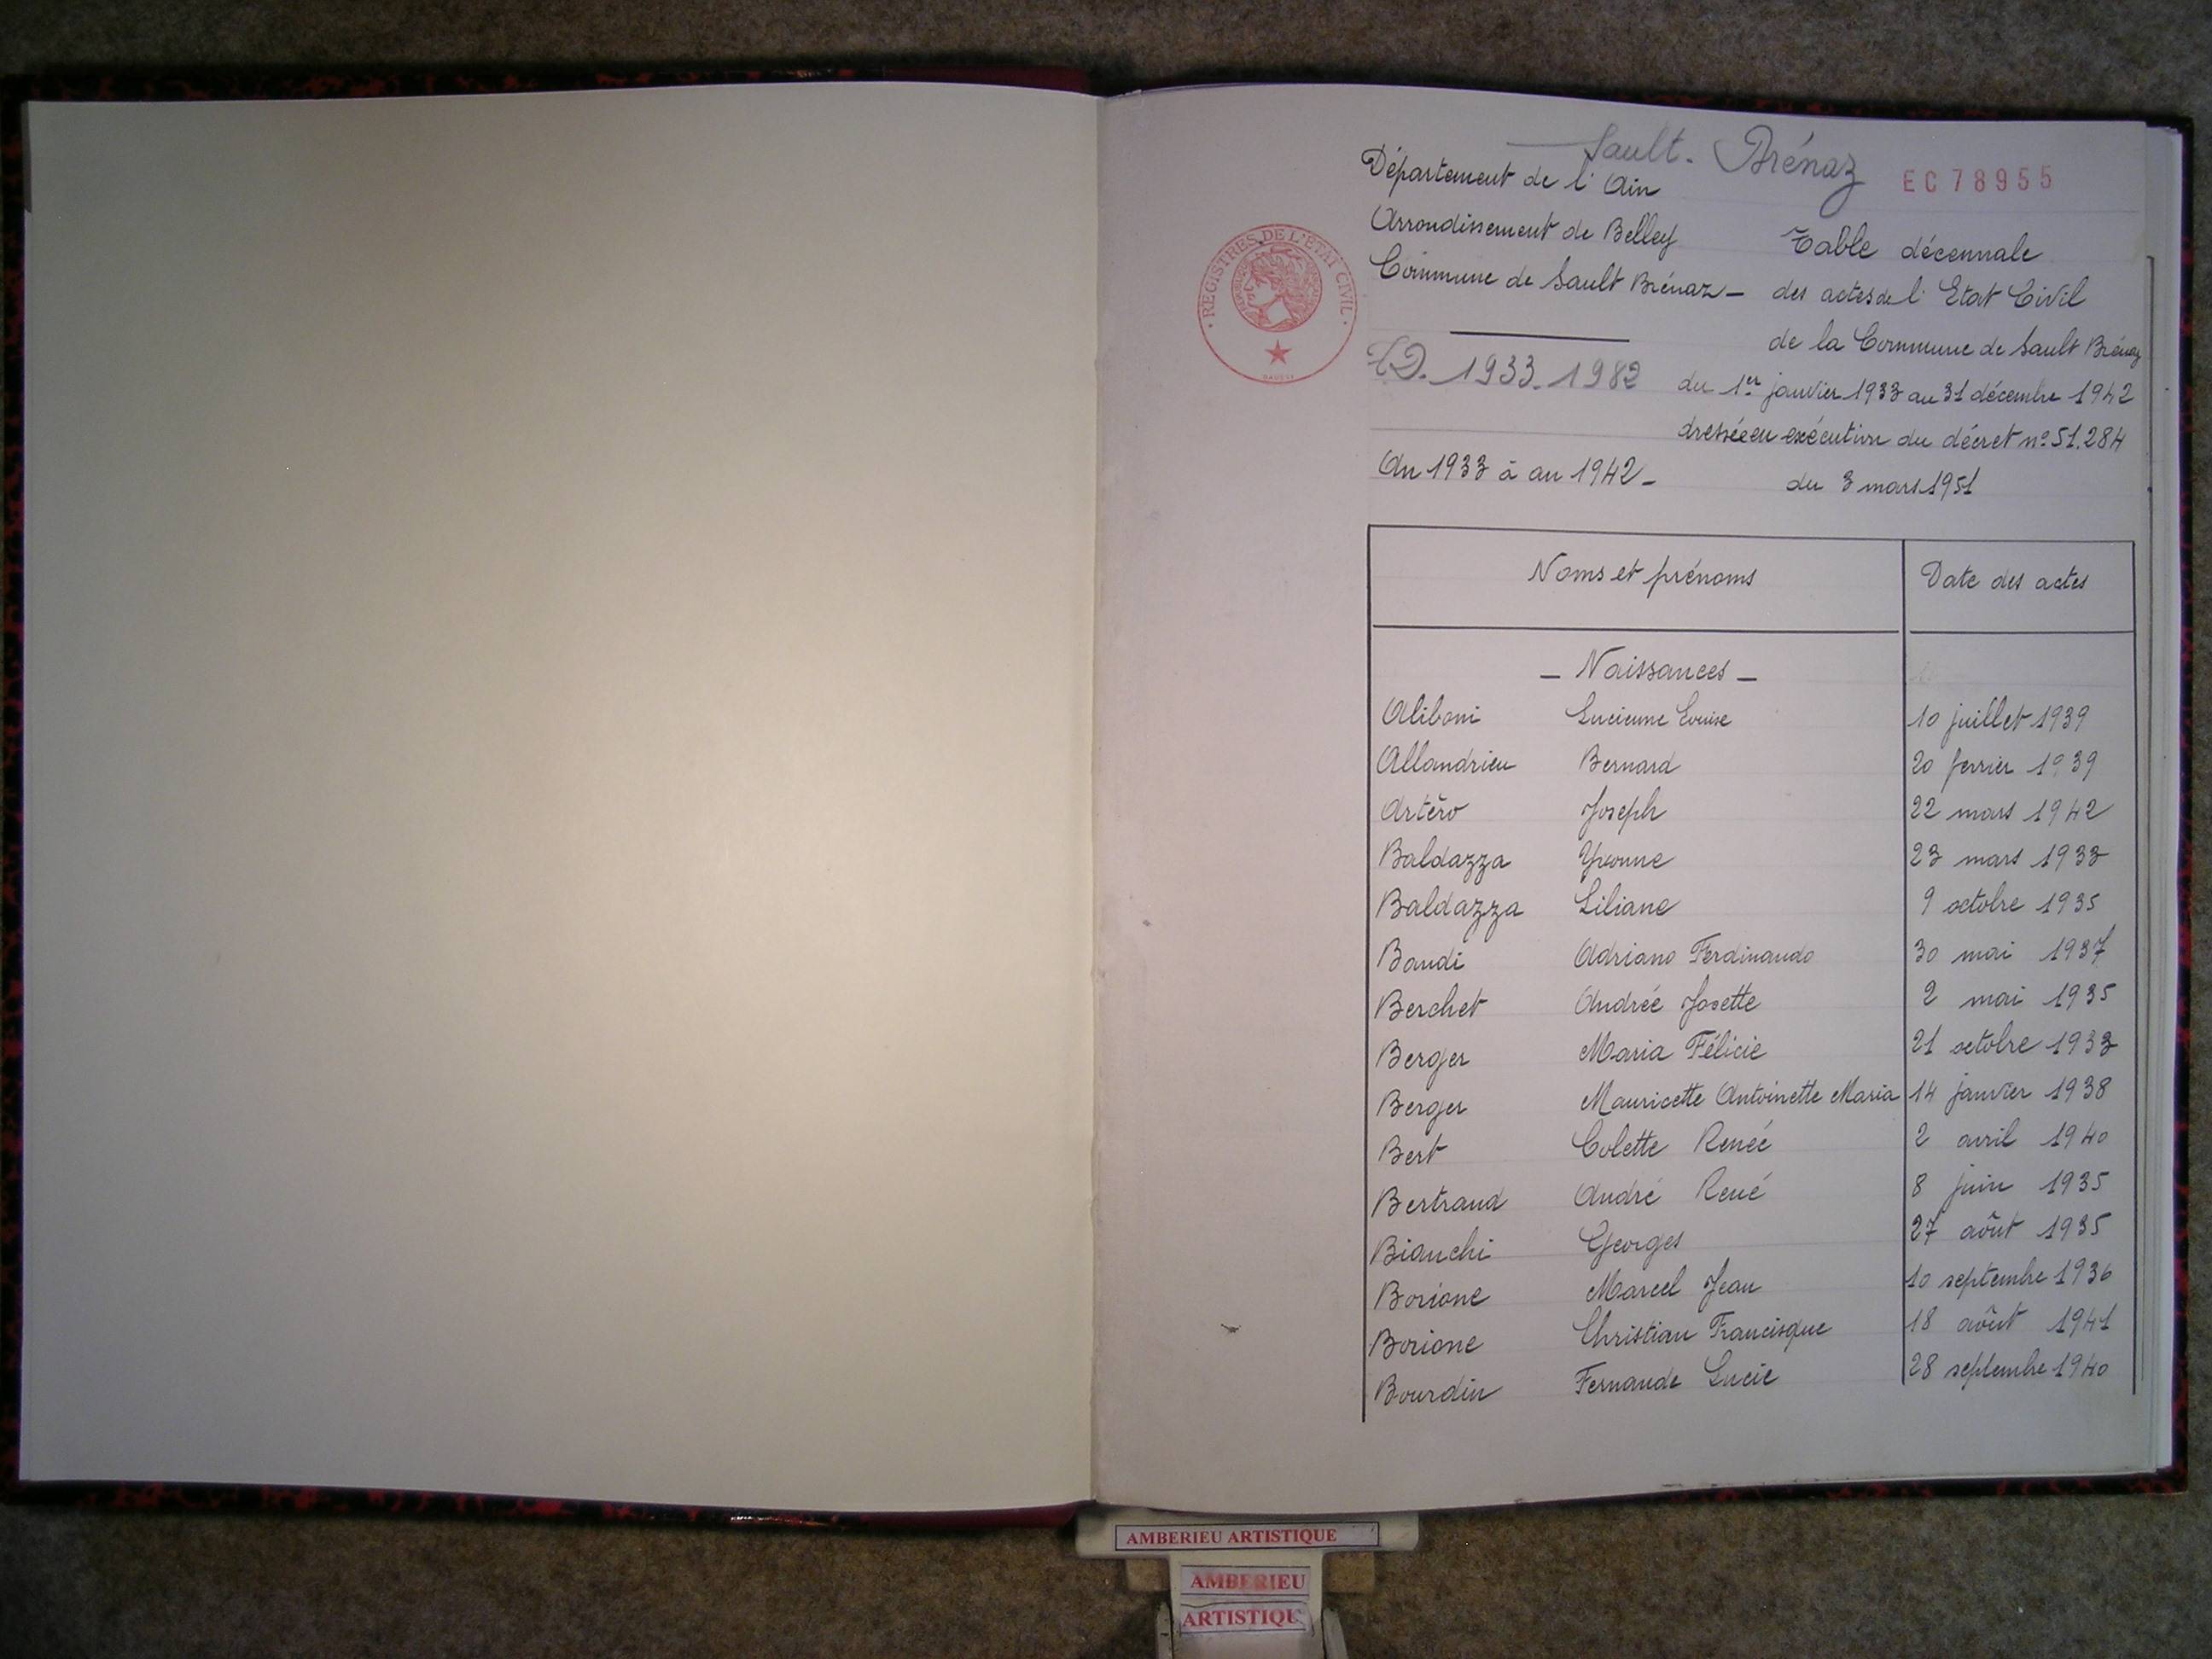 Sault-Brénaz
EC 78955
Département de l'Ain
Arrondissement de Belley
Commune de Sault Brénaz -
TD. 1933-1982
An 1933 à an 1942 -
Table décennale
des actes de l'Etat Civil
de la Commune de Sault Brénaz
du 1er janvier 1933 au 31 décembre 1942
dressée en exécution du décret n° 51.284
du 3 mars 1951
REGISTRES DE L'ETAT CIVIL
Noms et prénoms Date des actes
- Naissances -
Aliboni Lucienne Louise 10 juillet 1939
Allandrieu Bernard 20 ferrier 1939
Artéro Joseph 22 mars 1942
Baldazza Yvonne 23 mars 1933
Baldazza Liliane 9 octobre 1935
Baudi Adriano Ferdinando 30 mai 1937
Berchet Andrée Josette 2 mai 1935
Berger Maria Félicie 21 octobre 1933
Berger Mauricette Antoinette Maria 14 janvier 1938
Bert Colette Renée 2 avril 1940
Bertrand André René 8 juin 1935
Bianchi Georges 27 août 1935
Borione Marcel Jean 10 septembre 1936
Borione Christian Francisque 18 août 1941
Bourdin Fernande Lucie 28 septembre 1940
AMBERIEU ARTISTIQUE
AMBERIEU
ARTISTIQU